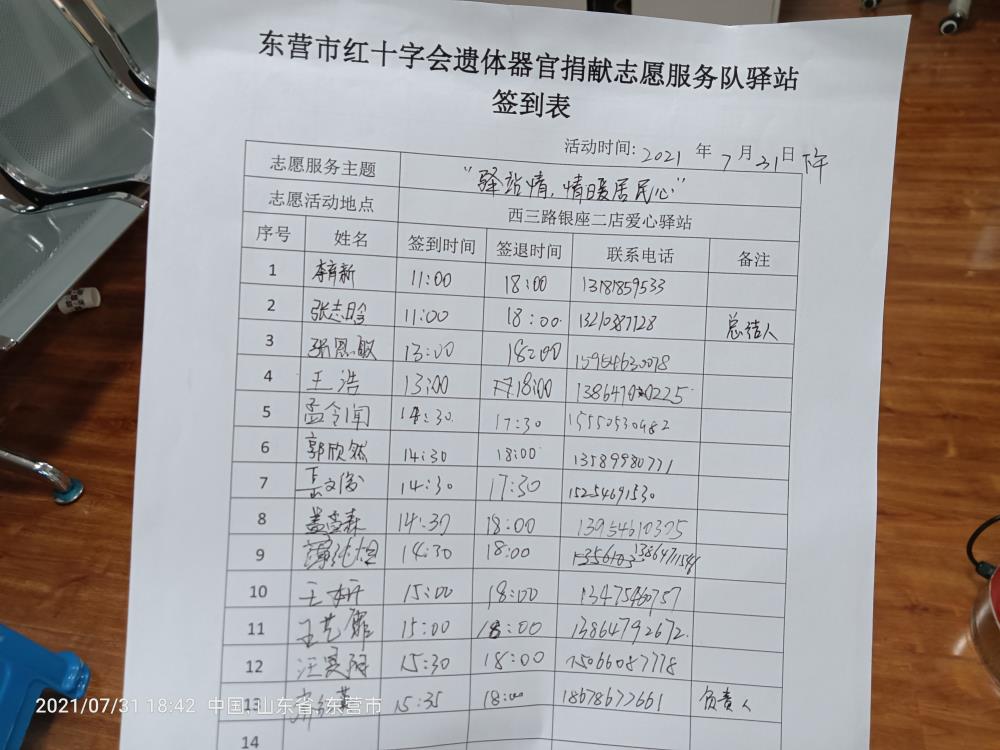 东营市红十字会遗体器官捐献志愿服务队驿站
签到表
活动时间: 2021 年 7 月 31 日 下午
志愿服务主题 “驿站情,情暖居民心”
志愿活动地点 西三路银座二店爱心驿站
序号 姓名 签到时间 签退时间 联系电话 备注
1 11:00 18:00 13181859533
2 张志晗 11:00 18:00 13210387128 总结人
3 张恩敏 13:00 18:00 15954630078
4 王浩 13:00 18:00
5 孟令闻 14:30 17:30 15550530482
6 郭欣然 14:30 18:00 13589980771
7 14:30 17:30 15254691530
8 盖莹森 14:30 18:00 13954610375
9 14:30 18:00
10 王妍 15:00 18:00 13475460757
11 王艺霏 15:00 18:00 13864792672
12 15:30 18:00 15066087778
13 15:35 18:00 18678677661 负责人
14
2021/07/31 18:42 中国,山东省,东营市